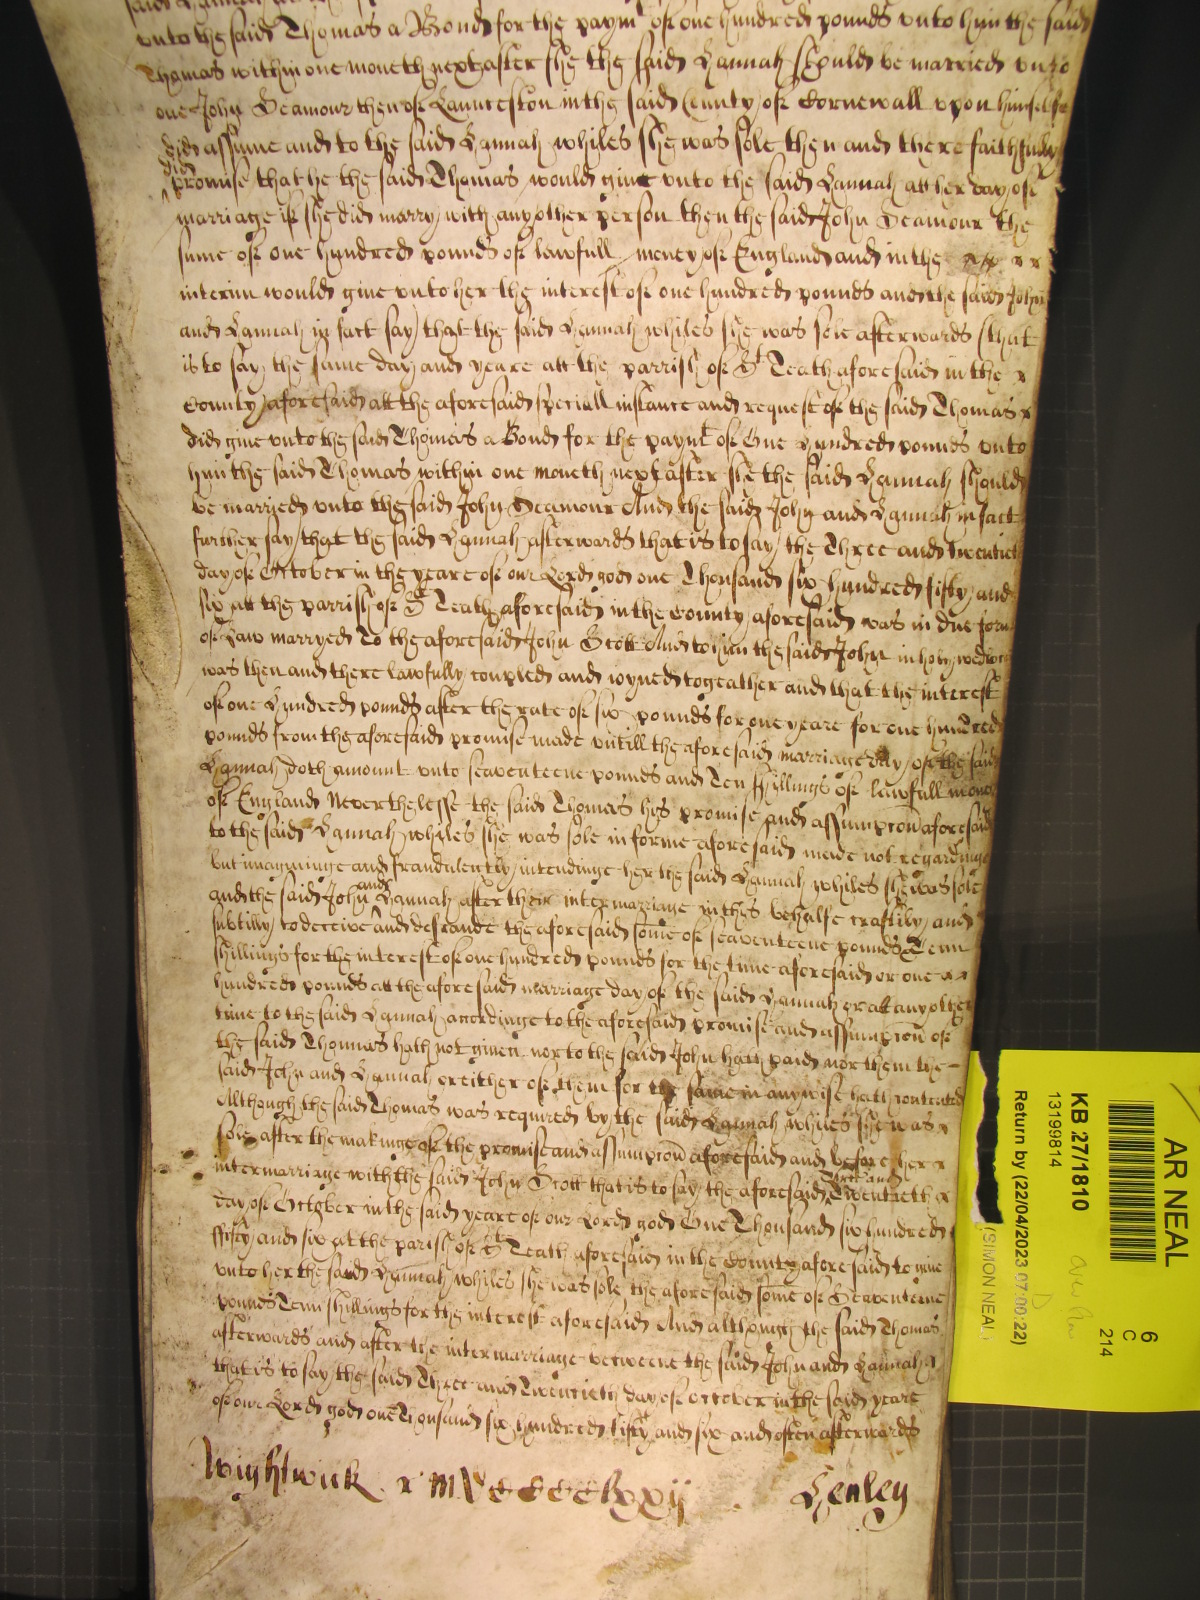 said Hannah
unto the said Thomas a Bond for the paymt of one hundred pounds unto him the said
Thomas within one moneth next after she the said Hannah should be married unto
one John Seamour then of Launceston in the said County of Cornewall upon himselfe
did assume and to the said Hannah whiles she was sole then and there faithfully
did
promise that he the said Thomas would give unto the said Hannah att her day of
marriage if she did marry with any other person then the said John Seamour the
sume of one hundred pounds of lawfull money of England and in the
interim would give unto her the interest of one hundred pounds and the said John
and Hannah in fact say that the said Hannah whiles she was sole afterwards (that
is to say the same day and yeare att the parrish of St Teath aforesaid in the
County aforesaid att the aforesaid speciall instance and request of the said Thomas
did give unto the said Thomas a Bond for the paymt of One Hundred pounds unto
him the said Thomas within one moneth next after she the said Hannah should
be married unto the said John Seamour And the said John and Hannah in fact
further say that the said Hannah afterwards that is to say the Three and twentieth
day of October in the yeare of our Lord god one Thousand six hundred fifty and
six att the parrish of St Teath aforesaid in the County aforesaid was in due forme
of Law marryed To the aforesaid John Scott And to him the said John in holy wedlock
was then and there lawfully coupled and ioyned togeather and that the interest
of one Hundred pounds after the rate of six pounds for one yeare for one hundred
pounds from the aforesaid promise made untill the aforesaid marriage day of the said
Hannah doth amount unto seaventeene pounds and Ten shillings of lawfull money
of England Neverthelesse the said Thomas his promise and assumpcon aforesaid
to the said Hannah whiles she was sole in forme aforesaid made not regardinge
but imagininge and fraudulently intendinge her the said Hannah whiles she was sole
and
and the said John Hannah after their intermarriage in this behalfe craftily and
subtilly to deceive and defraude the aforesaid some of seaventeene pounds Tenn
shillings for the interest of one hundred pounds for the time aforesaid or one
hundred pounds att the aforesaid marriage day of the said Hannah or att any other
time to the said Hannah accordinge to the aforesaid promise and assumpcon of
the said Thomas hath not given nor to the said John hath paid nor them the
said John and Hannah or either of them for the same in any wise hath contented
Although the said Thomas was required by the said Hannah whiles she was
sole after the makinge of the promise and assumpcon aforesaid and before her
intermarriage with the said John Scott that is to say the aforesaid Twentieth
day of October in the said yeare of our Lord god One Thousand six hundred
fifty and six at the parish of St Teath aforesaid in the County aforesaid to give
unto her the said Hannah whiles she was sole the aforesaid some of Seaventeene
pounds Tenn shillings for the interest aforesaid And although the said Thomas
afterwards and after the intermarriage betweene the said John and Hannah
that is to say the said Three and Twentieth day of october in the said yeare
of our Lord god one Thousand six hundred fifty and six and often afterwards
Wightwick
Henley
AR NEAL
KB 27/1810
13199814
Return by (22/04/2023 07:00:22)
(SIMON NEAL)
6
C
214